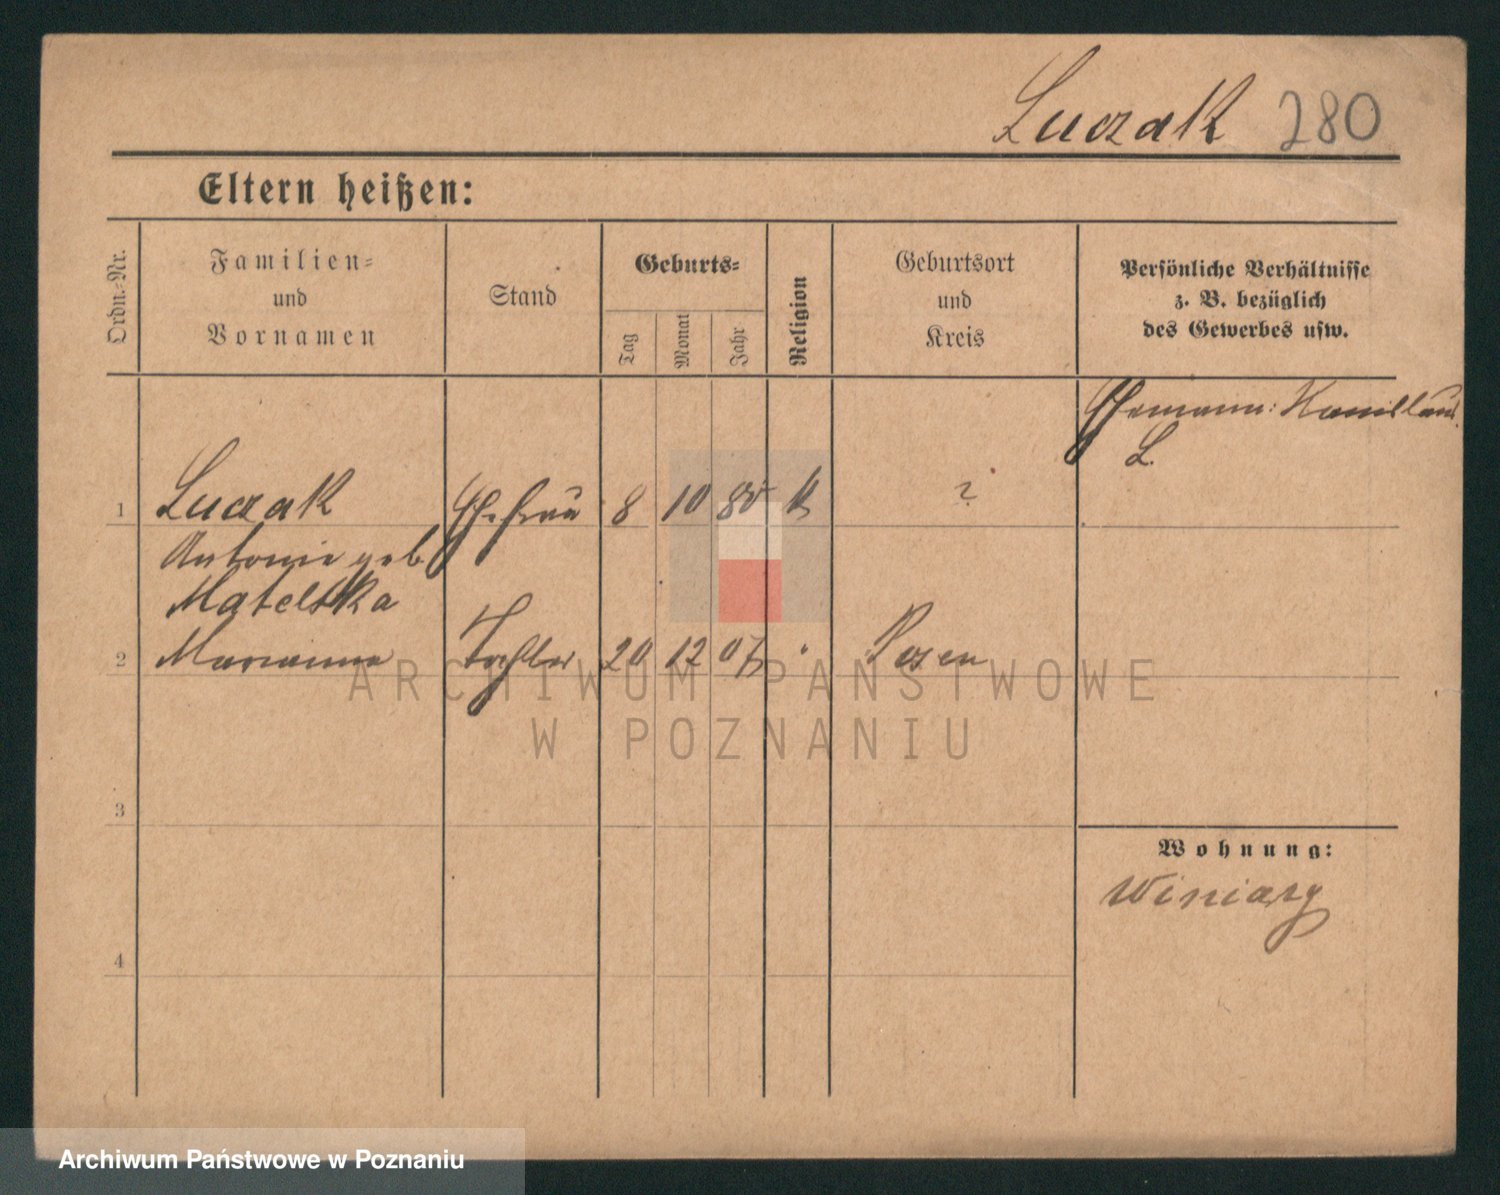 Luczak 280
Eltern heißen:
Ordn.-Nr.
Familien-
und
Vornamen
Stand
Geburts-
Tag
Monat
Jahr
Religion
Geburtsort
und
Kreis
Persönliche Verhältnisse
z. B. bezüglich
des Gewerbes usw.
Ehemann:
L.
1 Luczak Ehefrau 8 10 80 k ?
Antonie geb.
Matelska
2 Marianna Tochter 20 12 07 " Posen
ARCHIWUM PAŃSTWOWE
W POZNANIU
3
Wohnung:
Winiary
4
Archiwum Państwowe w Poznaniu